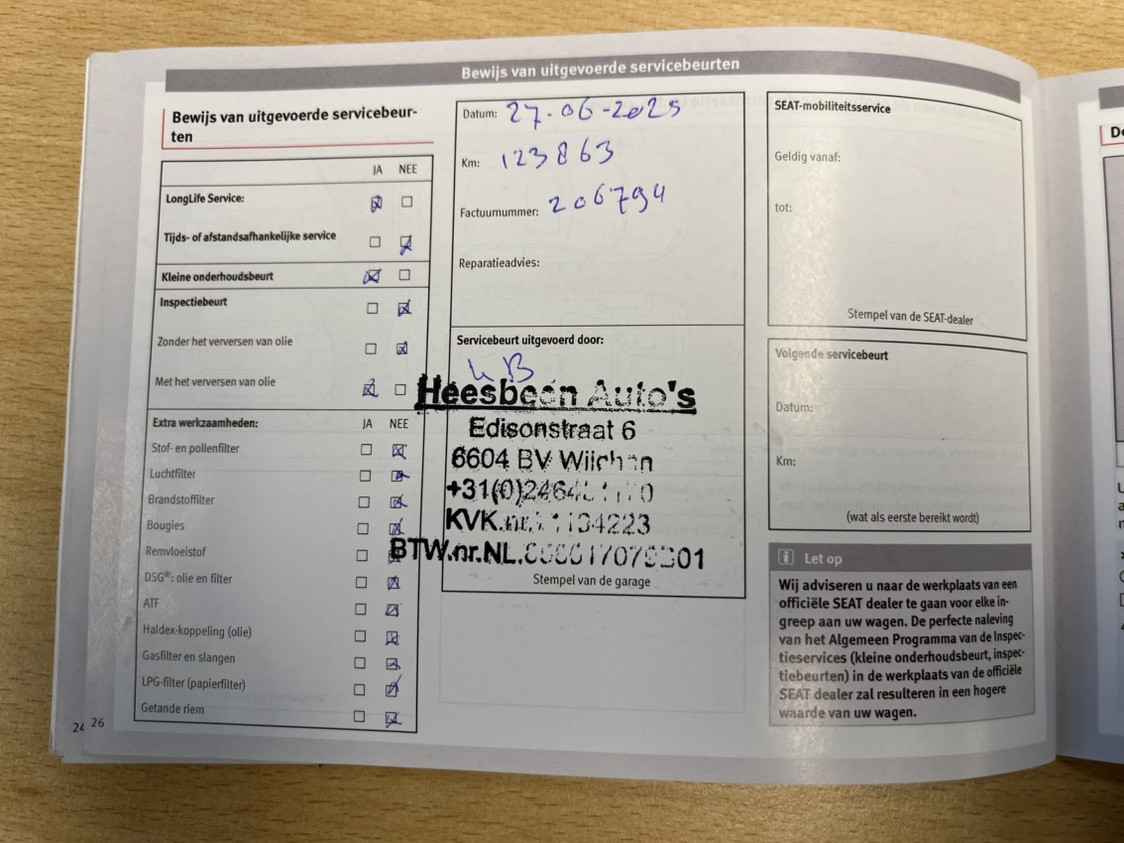 Bewijs van uitgevoerde servicebeurten
Bewijs van uitgevoerde servicebeur-
ten
JA NEE
LongLife Service:
Tijds- of afstandsafhankelijke service
Kleine onderhoudsbeurt
Inspectiebeurt
Zonder het verversen van olie
Met het verversen van olie
Extra werkzaamheden: JA NEE
Stof- en pollenfilter
Luchtfilter
Brandstoffilter
Bougies
Remvloeistof
DSG®: olie en filter
ATF
Haldex-koppeling (olie)
Gasfilter en slangen
LPG-filter (papierfilter)
Getande riem
26
Datum: 27-06-2025
Km: 123863
Factuurnummer: 206794
Reparatieadvies:
Servicebeurt uitgevoerd door:
Heesbeen Auto's
Edisonstraat 6
6604 BV Wijchen
KVK.nr.
BTW.nr.NL.
Stempel van de garage
SEAT-mobiliteitsservice
Geldig vanaf:
tot:
Stempel van de SEAT-dealer
Volgende servicebeurt
Datum:
Km:
(wat als eerste bereikt wordt)
Let op
Wij adviseren u naar de werkplaats van een
officiële SEAT dealer te gaan voor elke in-
greep aan uw wagen. De perfecte naleving
van het Algemeen Programma van de Inspec-
tieservices (kleine onderhoudsbeurt, inspec-
tiebeurten) in de werkplaats van de officiële
SEAT dealer zal resulteren in een hogere
waarde van uw wagen.